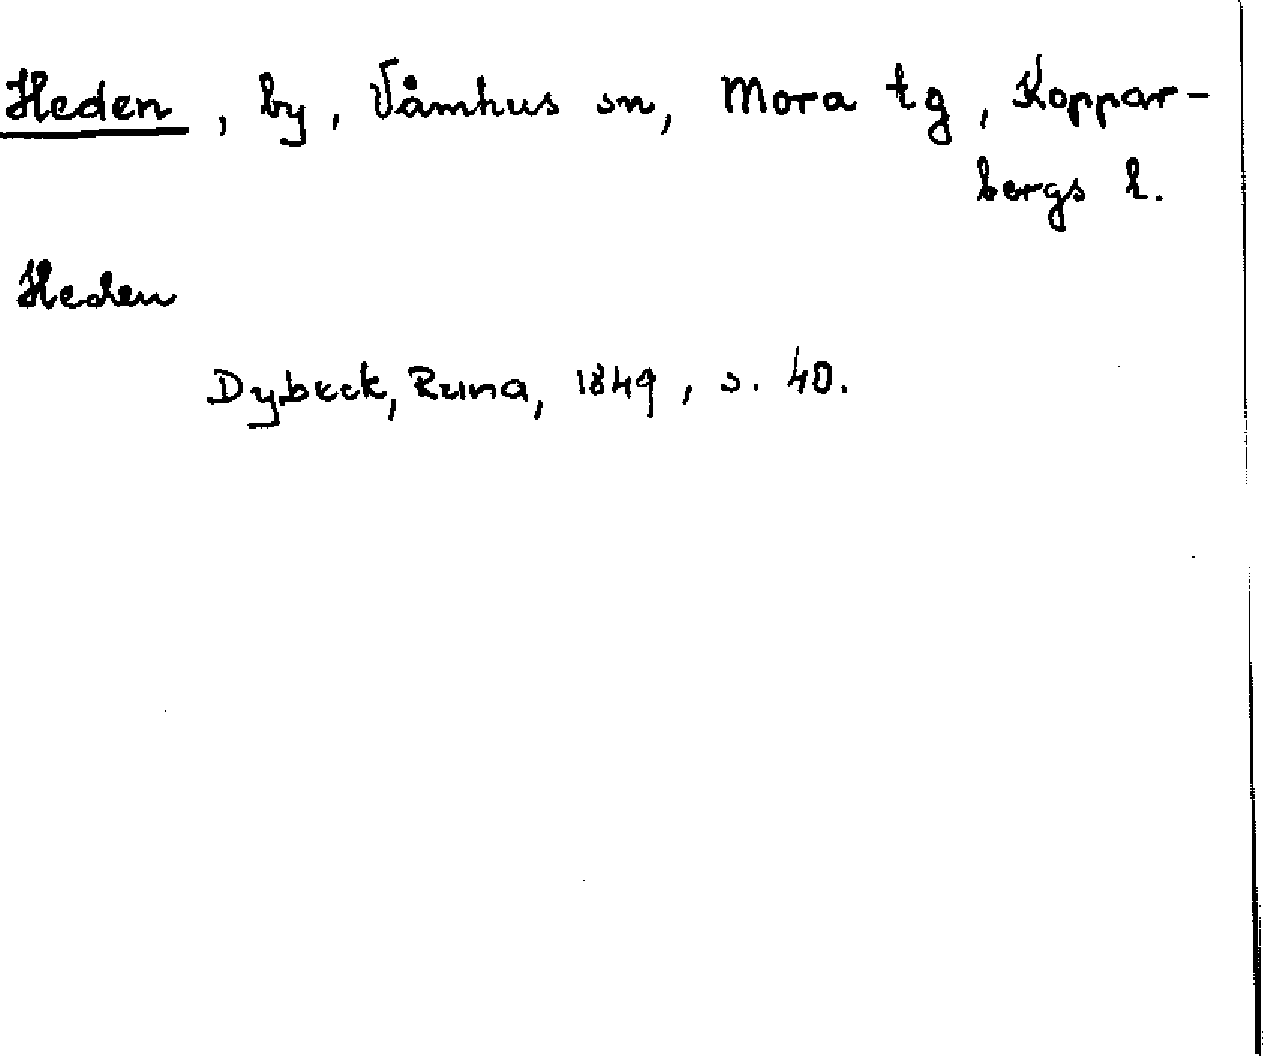 Heden, by, Våmhus sn, Mora tg, Koppar-
bergs l.
Heden
Dybeck, Runa, 1849, s. 40.